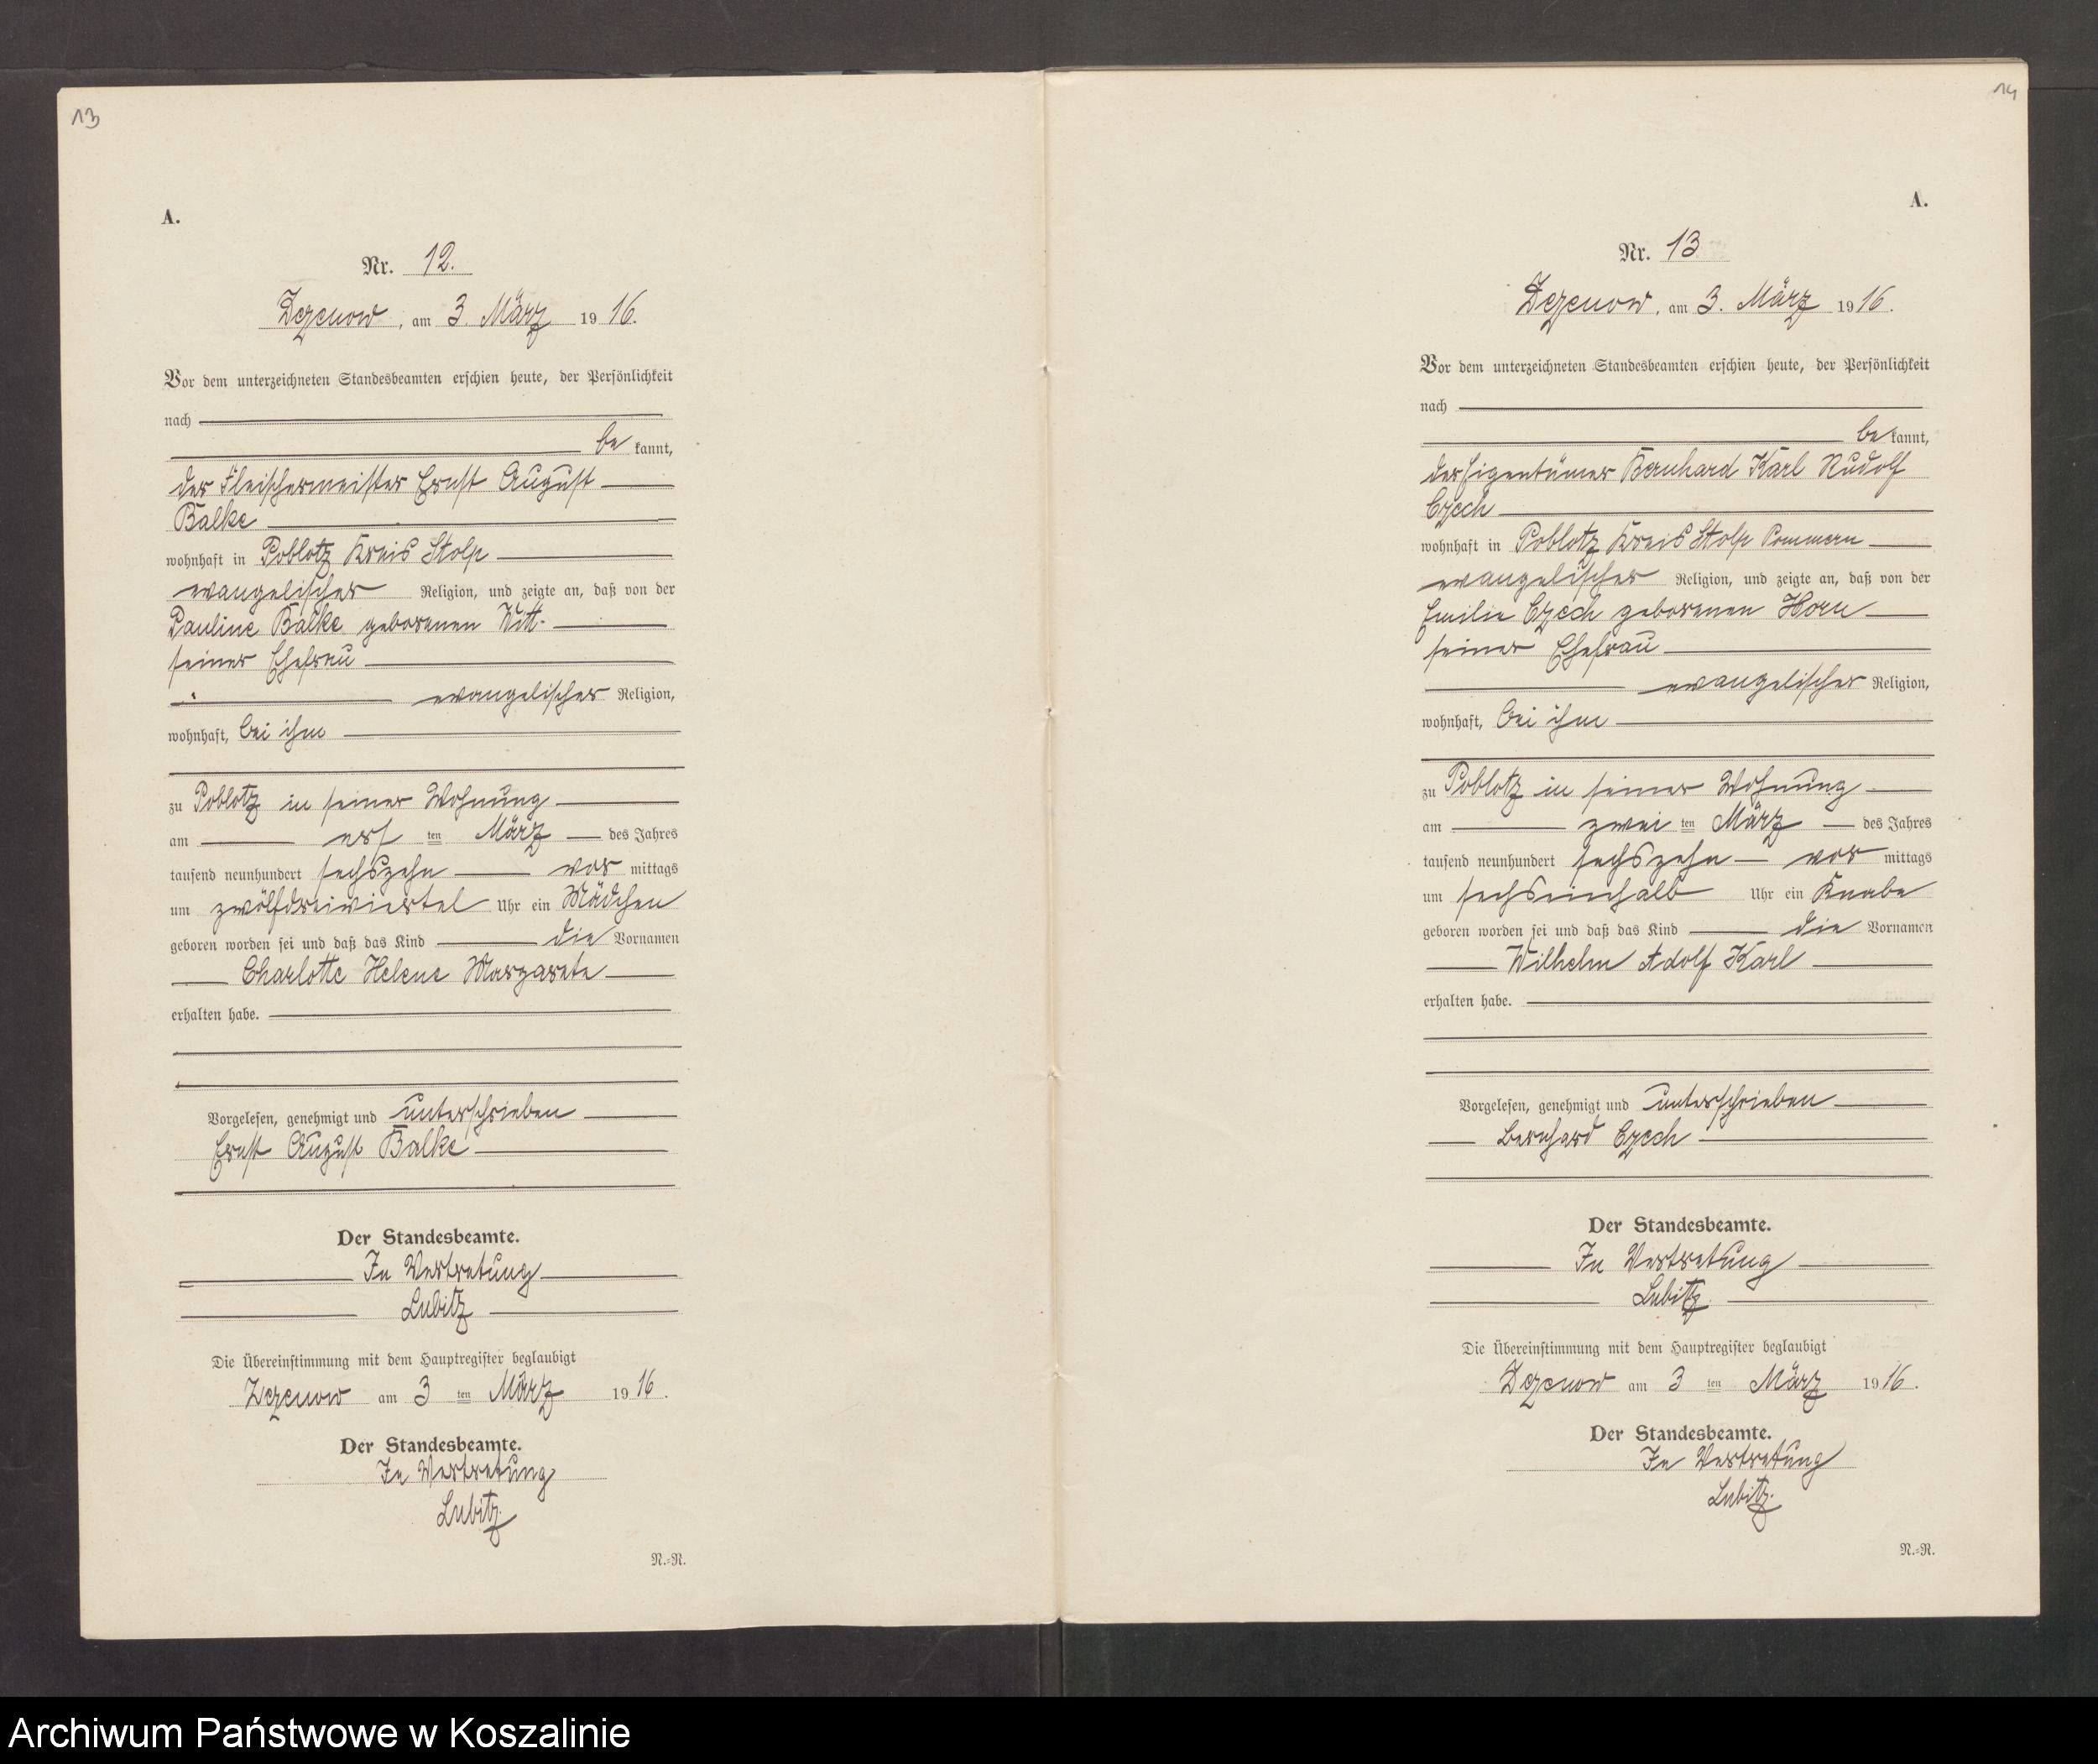 13
A.
Nr. 12.
Zezenow, am 3. März 1916.
Vor dem unterzeichneten Standesbeamten erschien heute, der Persönlichkeit
nach
be kannt,
der Fleischermeister Ernst August
Balke
wohnhaft in Poblotz Kreis Stolp
evangelischer Religion, und zeigte an, daß von der
Pauline Balke geborenen Witt.
seiner Ehefrau
evangelischer Religion,
wohnhaft, bei ihm
zu Poblotz in seiner Wohnung
am ers ten März des Jahres
tausend neunhundert sechszehn vor mittags
um zwölfdreiviertel Uhr ein Mädchen
geboren worden sei und daß das Kind die Vornamen
Charlotte Helene Margarete
erhalten habe.
Vorgelesen, genehmigt und unterschrieben
Ernst August Balke
Der Standesbeamte.
In Vertretung
Lubitz
Die Übereinstimmung mit dem Hauptregister beglaubigt
Zezenow am 3 ten März 1916.
Der Standesbeamte.
In Vertretung
Lubitz.
N.=R.
14
A.
Nr. 13
Zezenow, am 3. März 1916.
Vor dem unterzeichneten Standesbeamten erschien heute, der Persönlichkeit
nach
be kannt,
der Eigentümer Bernhard Karl Rudolf
Czech
wohnhaft in Poblotz Kreis Stolp Pommern
evangelischer Religion, und zeigte an, daß von der
Emilie Czech geborenen Horn
seiner Ehefrau
evangelischer Religion,
wohnhaft, bei ihm
zu Poblotz in seiner Wohnung
am zwei ten März des Jahres
tausend neunhundert sechszehn vor mittags
um sechseinhalb Uhr ein Knabe
geboren worden sei und daß das Kind die Vornamen
Wilhelm Adolf Karl
erhalten habe.
Vorgelesen, genehmigt und unterschrieben
Bernhard Czech
Der Standesbeamte.
In Vertretung
Lubitz
Die Übereinstimmung mit dem Hauptregister beglaubigt
Zezenow am 3 ten März 1916.
Der Standesbeamte.
In Vertretung
Lubitz.
N.=R.
Archiwum Państwowe w Koszalinie